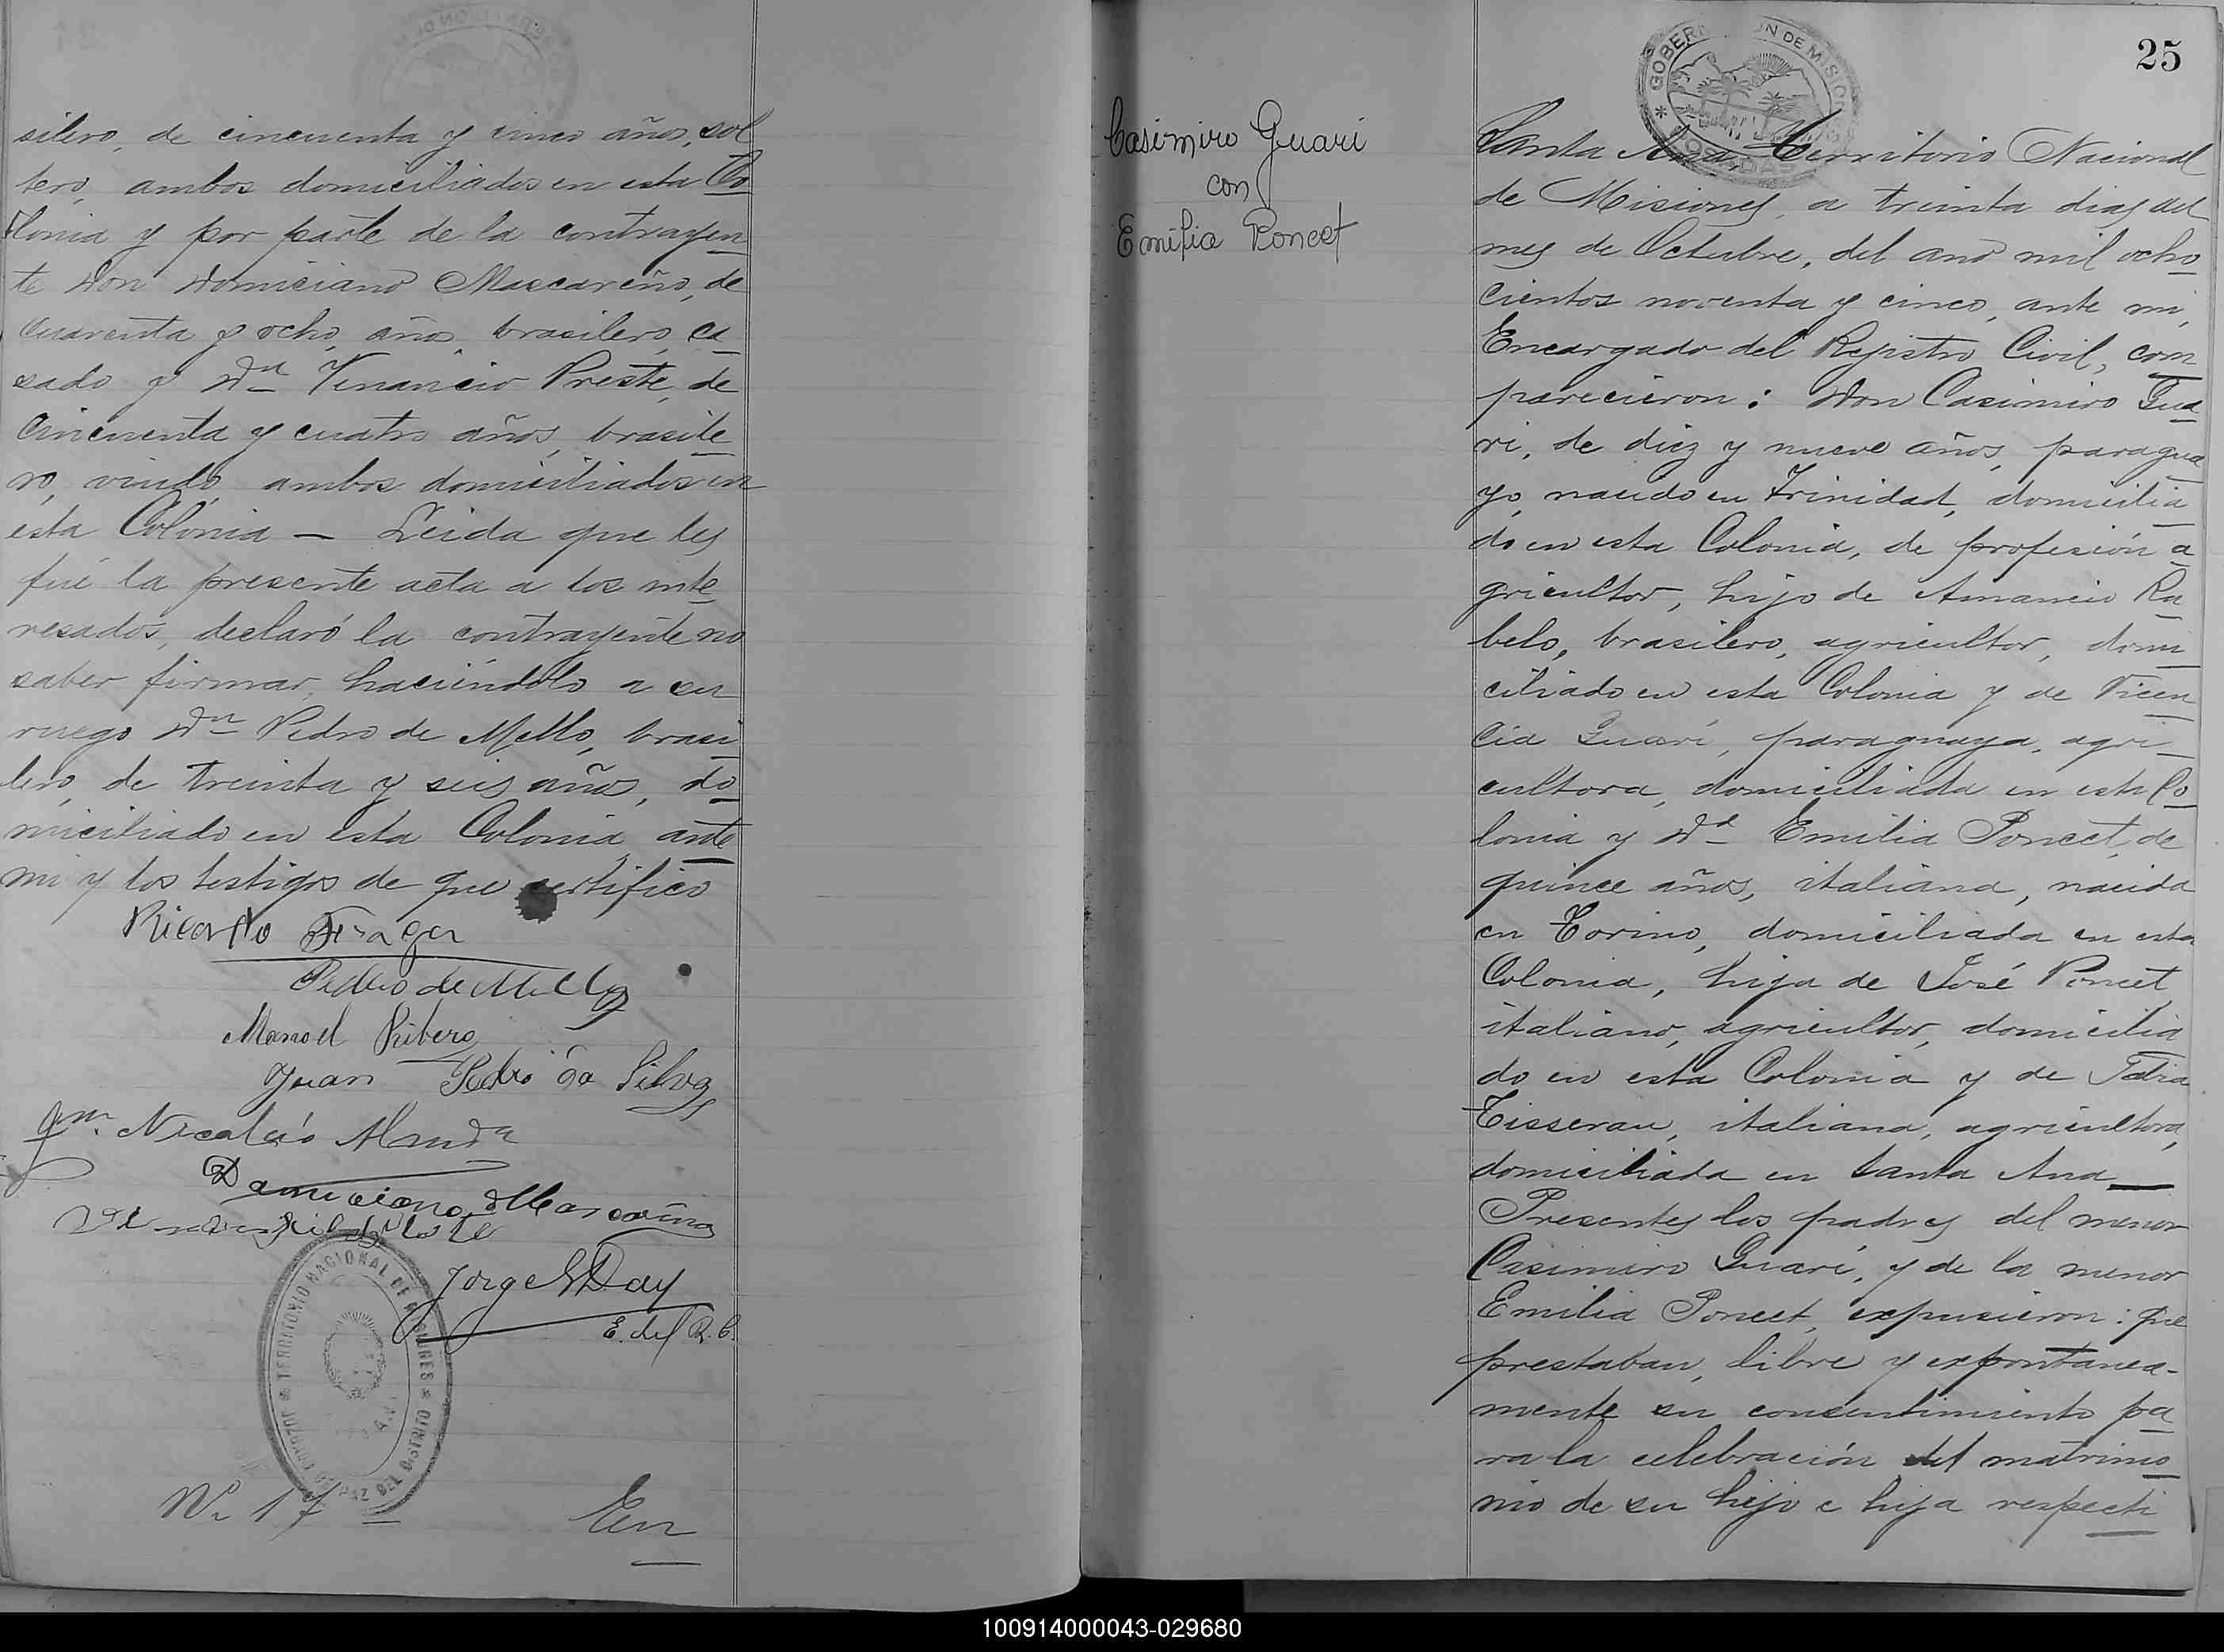 silero, de cincuenta y cinco años, sol
tero, ambos domiciliados en esta Co
lonia y por parte de la contrayen
te Don Domiciano Mascareño, de
cuarenta y ocho años, brasilero, ca
sado y Dn Venancio Preste, de
cincuenta y cuatro años, brasile
ro, viudo, ambos domiciliados en
esta Colonia — Leida que les
fué la presente acta a los inte
resados, declaró la contrayente no
saber firmar, haciéndolo a su
ruego Dn Pedro de Mello, brasi
lero, de treinta y seis años, do
miciliado en esta Colonia, ante
mi y los testigos de que certifico
Ricardo Fraga
Pedro de Mello
Manoel Ribero
Juan Pedro da Silva
Domiciano Mascareño
Jorge Day
E. del R. C.
TERRITORIO NACIONAL DE MISIONES
No 17
En
25
GOBERNACION DE MISIONES
POSADAS
Casimiro Guari
con
Emilia Poncet
Santa Ana, Territorio Nacional
de Misiones, a treinta dias del
mes de Octubre, del año mil ocho
cientos noventa y cinco, ante mi,
Encargado del Rejistro Civil, com
parecieron: Don Casimiro Gua
ri, de diez y nueve años, paragua
yo, nacido en Trinidad, domicilia
do en esta Colonia, de profesión a
gricultor, hijo de Amancio Ra
belo, brasilero, agricultor, domi
ciliado en esta Colonia y de Vicen
cia Guarí, paraguaya, agri
cultora, domiciliada en esta Co
lonia y Da Emilia Poncet, de
quince años, italiana, nacida
en Torino, domiciliada en esta
Colonia, hija de José Poncet
italiano, agricultor, domicilia
do en esta Colonia y de
Tisseran, italiana, agricultora,
domiciliada en Santa Ana
Presentes los padres del menor
Casimiro Guarí, y de la menor
Emilia Poncet, expusieron: que
prestaban, libre y expontanea-
mente su consentimiento pa
ra la celebración del matrimo
nio de su hijo e hija respecti
100914000043-029680